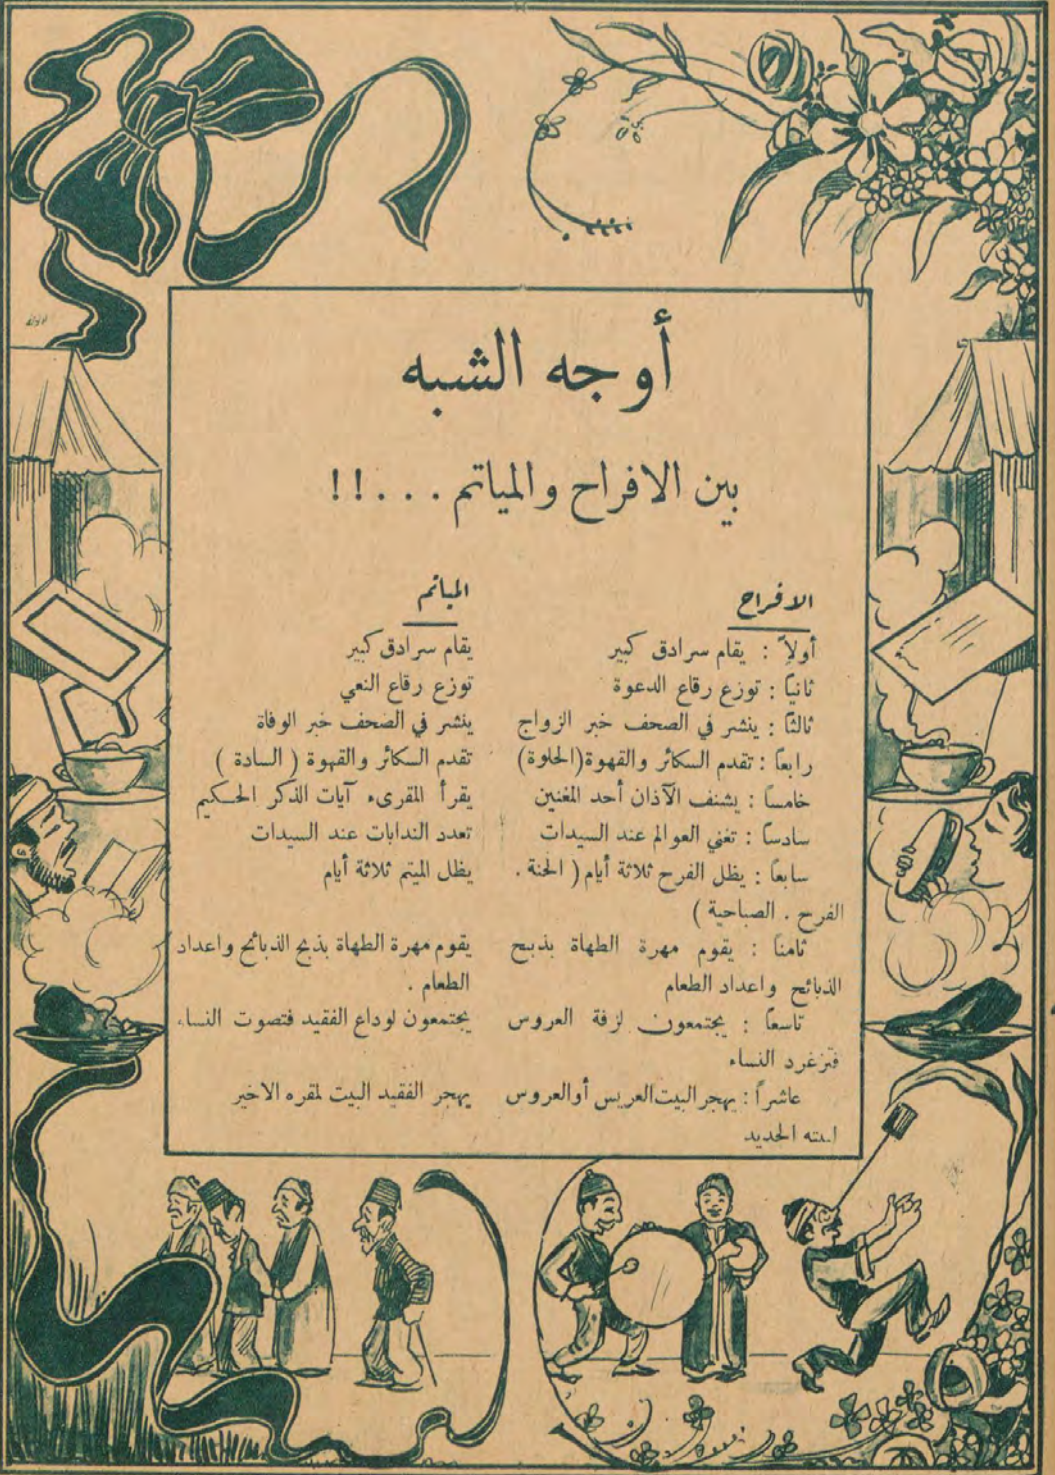 أوجه الشبه
بين الافراح والمياتم . . . !!
الافراح
أولاً : يقام سرادق كبير
ثانياً : توزع رقاع الدعوة
ثالثاً : ينشر في الصحف خبر الزواج
رابعاً : تقدم السكائر والقهوة (الحلوة)
خامساً : يشنف الآذان أحد المغنين
سادساً : تغني العوالم عند السيدات
سابعاً : يظل الفرح ثلاثة أيام ( الحنة .
الفرح . الصباحية )
ثامناً : يقوم مهرة الطهاة بذبح
الذبائح واعداد الطعام
تاسعاً : يجتمعون لزفة العروس
فتزغرد النساء
عاشراً : يهجر البيت العريس أو العروس
لبيته الجديد
المياتم
يقام سرادق كبير
توزع رقاع النعي
ينشر في الصحف خبر الوفاة
تقدم السكائر والقهوة ( السادة )
يقرأ المقرىء آيات الذكر الحكيم
تعدد الندابات عند السيدات
يظل الميتم ثلاثة أيام
يقوم مهرة الطهاة بذبح الذبائح واعداد
الطعام .
يجتمعون لوداع الفقيد فتصوت النساء
يهجر الفقيد البيت لمقره الاخير